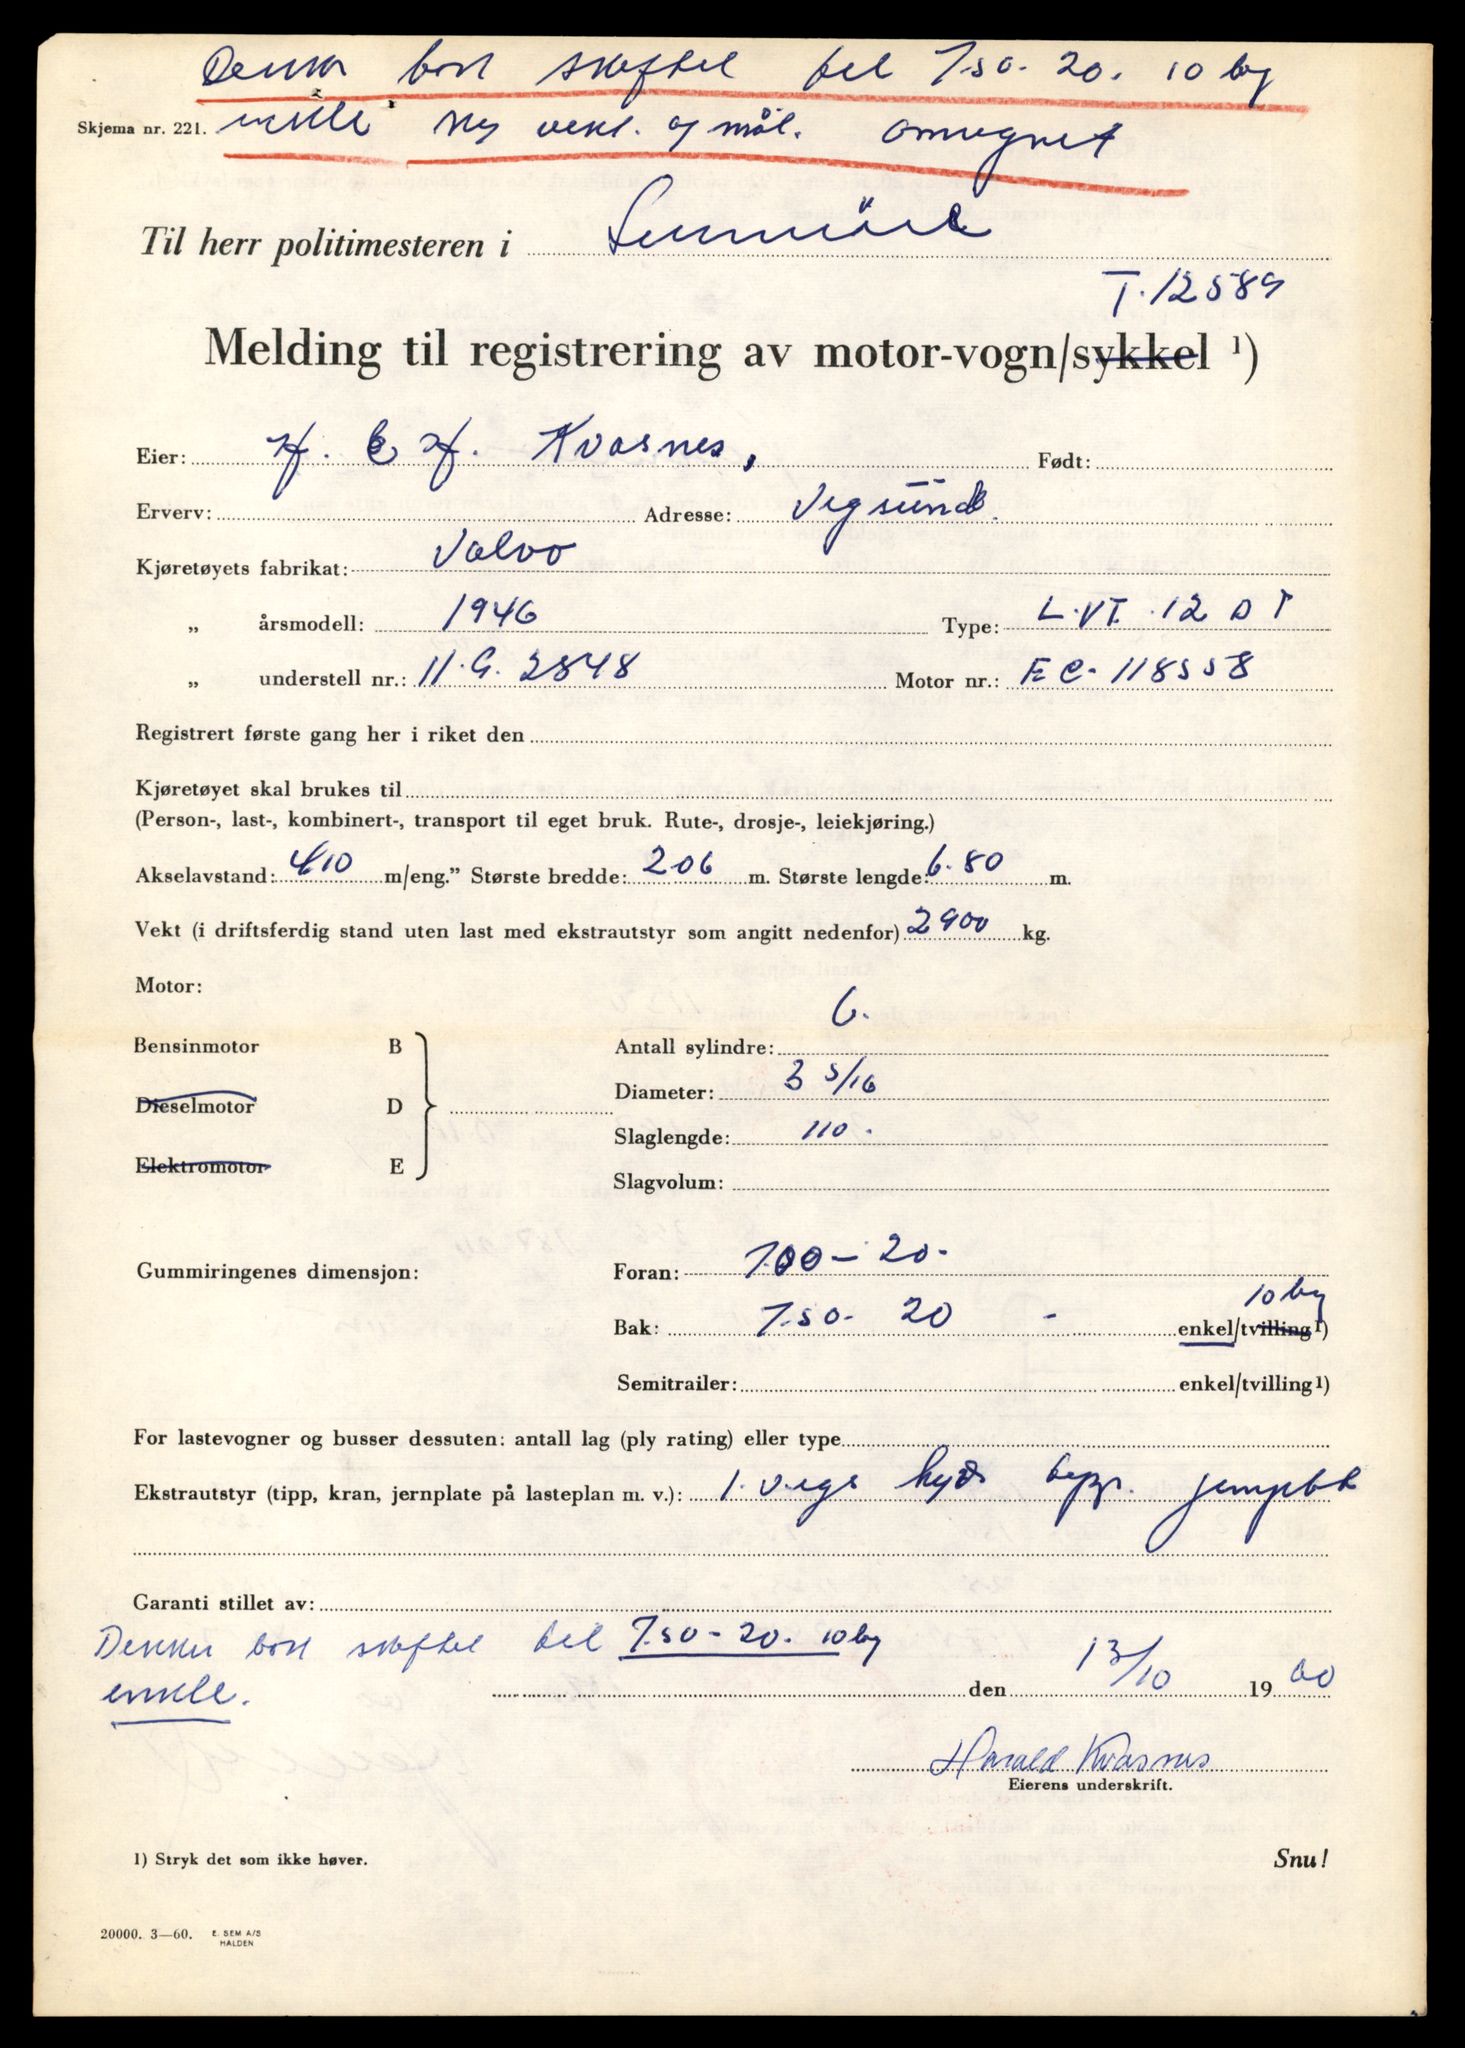 bak skiftet til 7.50-20. 10 lag
Skjema nr. 221. enkle ny vekt. og mål. omregnet
Til herr politimesteren i Sunnmöre
T. 12589
Melding til registrering av motor-vogn/sykkel ¹)
Eier: H. & H. Kvasnes, Født:
Erverv: Adresse: Vegsund.
Kjøretøyets fabrikat: Volvo
„ årsmodell: 1946 Type: L.VT. 12 D T
„ understell nr.: 11.G. 2848 Motor nr.: EC- 118558
Registrert første gang her i riket den
Kjøretøyet skal brukes til
(Person-, last-, kombinert-, transport til eget bruk. Rute-, drosje-, leiekjøring.)
Akselavstand: 410 m/eng.” Største bredde: 206 m. Største lengde: 6.80 m.
Vekt (i driftsferdig stand uten last med ekstrautstyr som angitt nedenfor) 2900 kg.
Motor:
Bensinmotor B Antall sylindre: 6.
Dieselmotor D Diameter: 3 5/16
Slaglengde: 110.
Elektromotor E
Slagvolum:
Gummiringenes dimensjon: Foran: 7.00-20-
10 lag
Bak: 7.50-20 - enkel/tvilling ¹)
Semitrailer: enkel/tvilling ¹)
For lastevogner og busser dessuten: antall lag (ply rating) eller type
Ekstrautstyr (tipp, kran, jernplate på lasteplan m. v.): 1. vegs hydr
Garanti stillet av:
Dekker bak skiftet til 7.50-20. 10 lag
enkle. den 13/10 1960
Harald Kvasnes
Eierens underskrift.
1) Stryk det som ikke høver. Snu!
20000. 3—60. E. SEM A/S
HALDEN